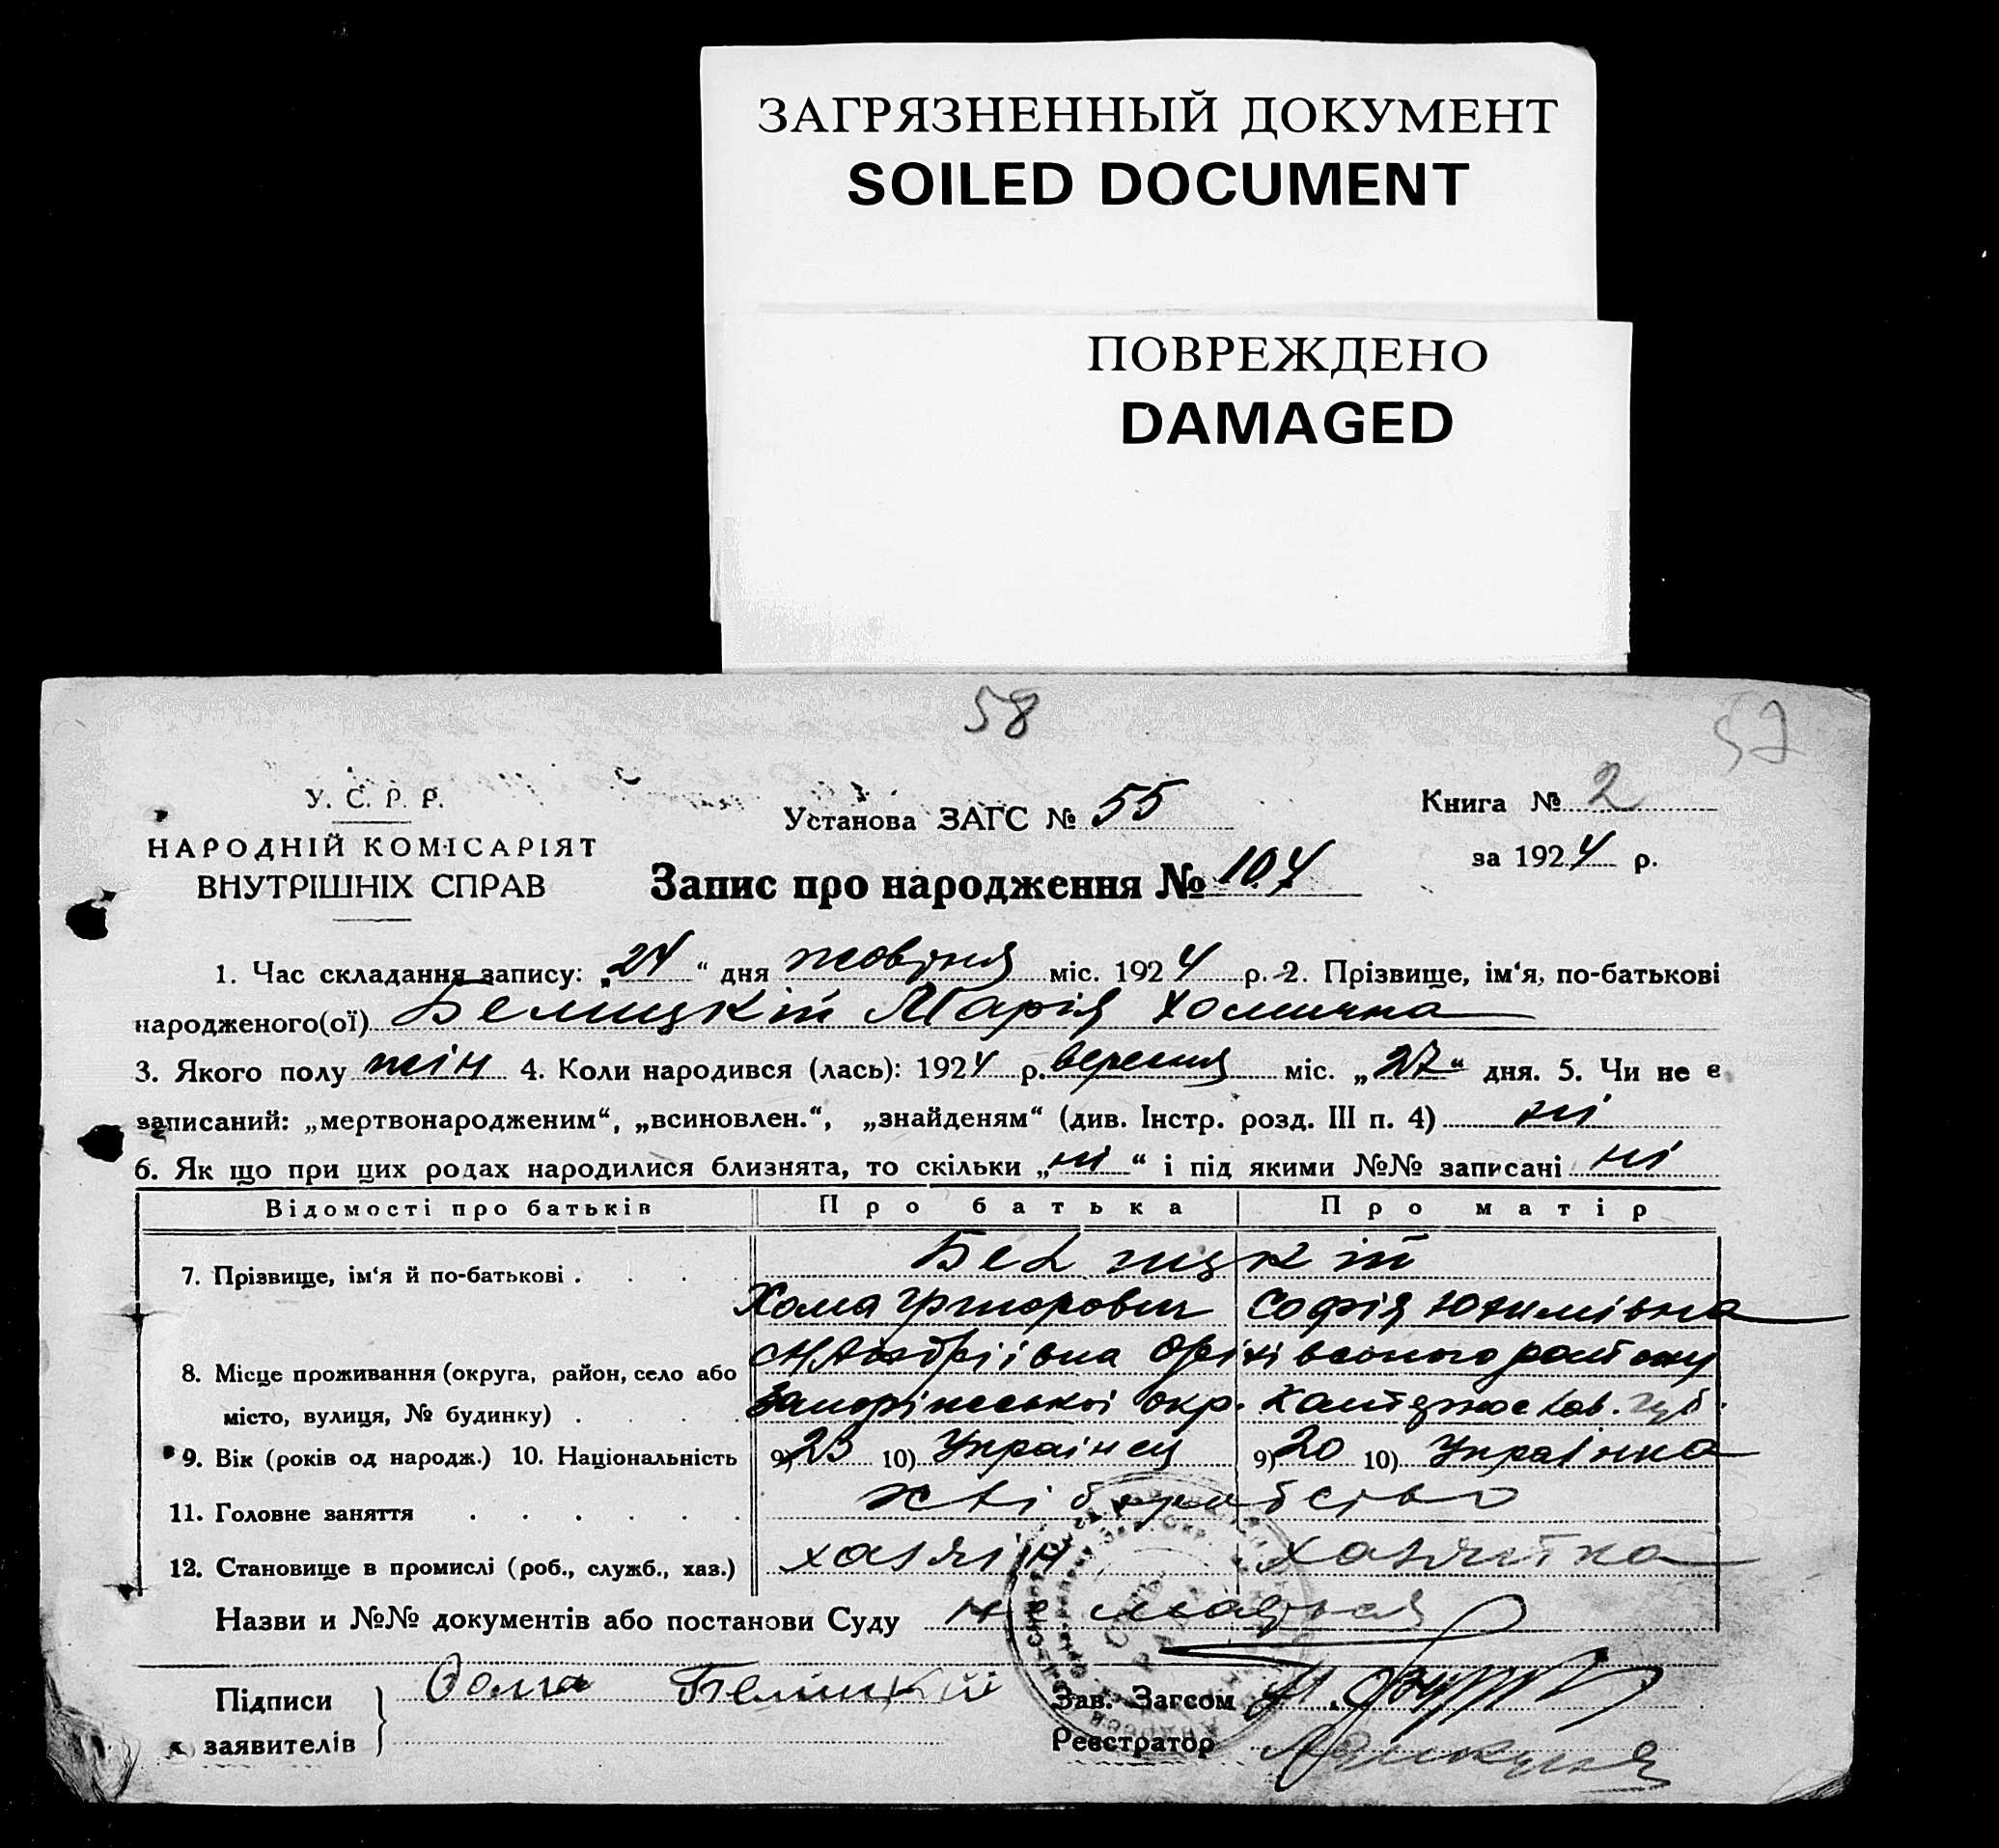 ЗАГРЯЗНЕННЫЙ ДОКУМЕНТ
SOILED DOCUMENT
ПОВРЕЖДЕНО
DAMAGED
58
57
У. С. Р. Р.
НАРОДНІЙ КОМІСАРІЯТ
ВНУТРІШНІХ СПРАВ
Установа ЗАГС № 55
Книга № 2
за 1924 р.
Запис про народження № 104
1. Час складання запису: „24“ дня жовтня міс. 1924 р. 2. Прізвище, ім‘я, по-батькові
народженого(ої) Белицкій Марія Хомична
3. Якого полу жін 4. Коли народився (лась): 1924 р. вересня міс. „27“ дня. 5. Чи не є
записаний: „мертвонародженим“, „всиновлен.“, „знайденям“ (див. Інстр. розд. III п. 4) ні
6. Як що при цих родах народилися близнята, то скільки „ні“ і під якими №№ записані ні
Відомості про батьків Про батька Про матір
7. Прізвище, ім‘я й по-батькові . . . . Белицкій
Хома Григорович Софія Юхимівна
8. Місце проживання (округа, район, село або Оріхівського району
місто, вулиця, № будинку) . . . . Запоріжської окр. губ.
9. Вік (років од народж.) 10. Національність 9) 23 10) Українец 9) 20 10) Українка
11. Головне заняття . . . . . . хліборобство
12. Становище в промислі (роб., служб., хаз.) хазяїн хазяйка
Назви и №№ документів або постанови Суду не
Підписи
заявителів
Хома Белицкий
Зав. Загсом
Реєстратор